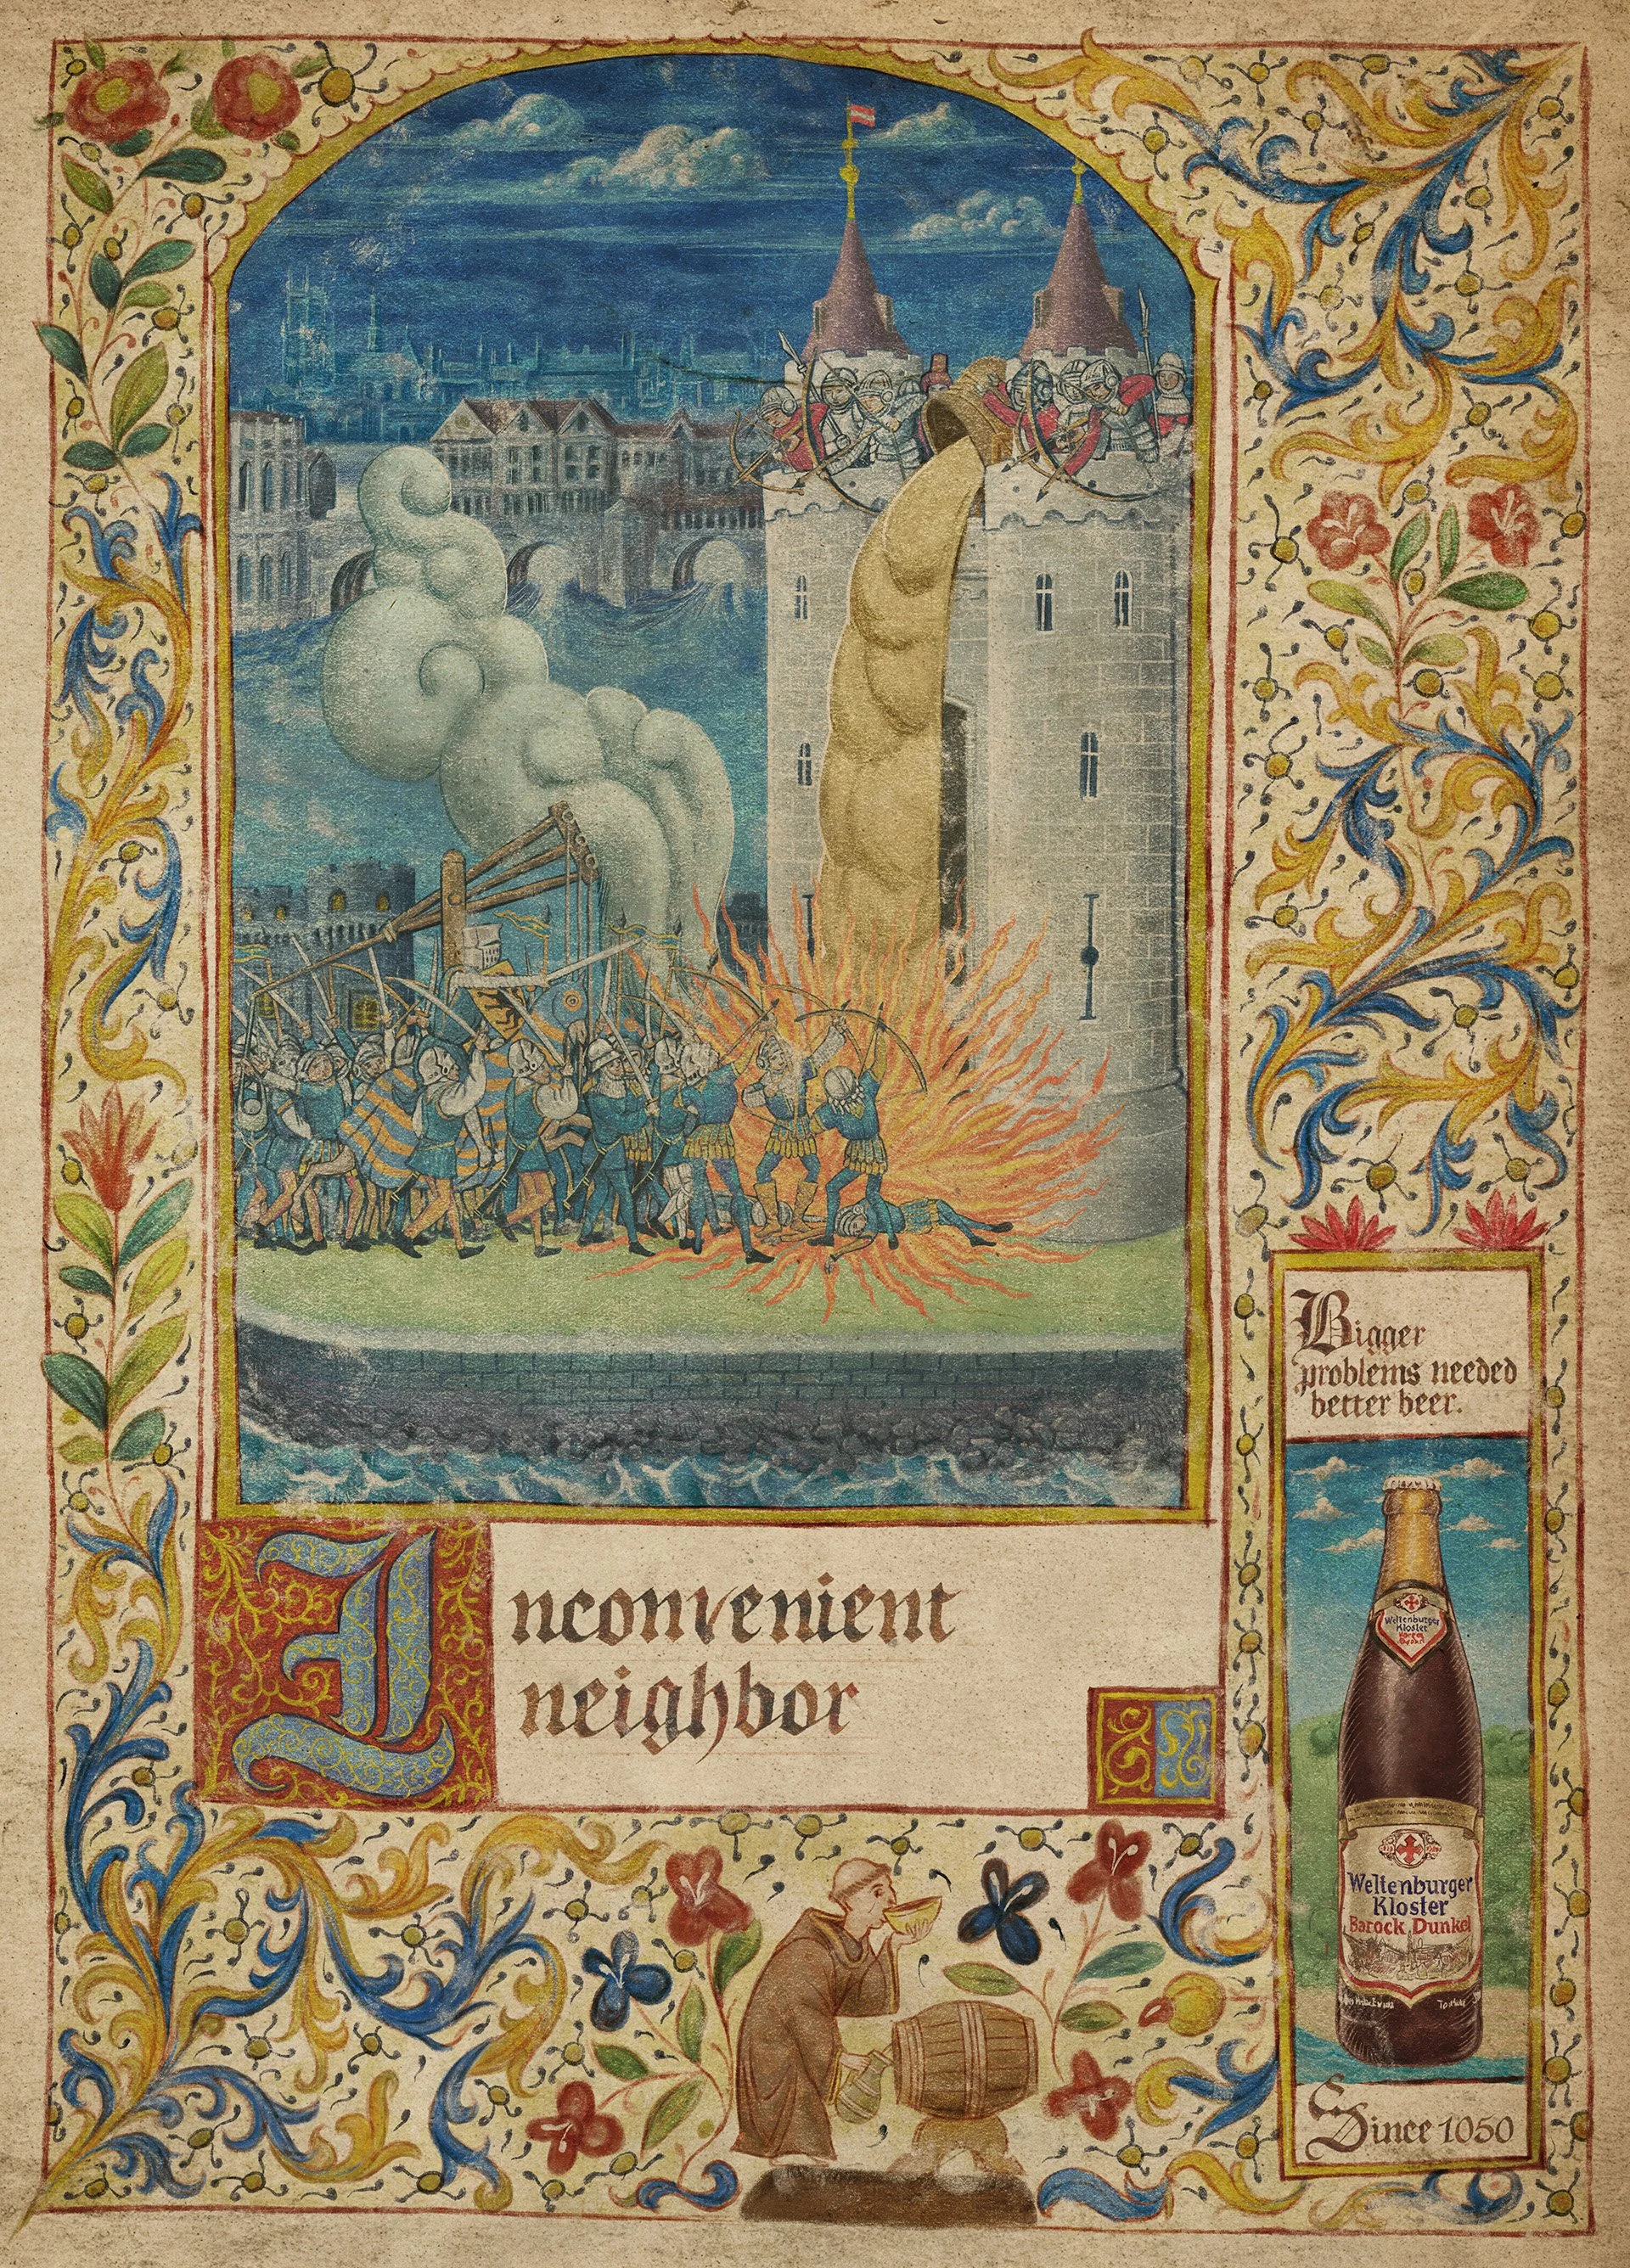 Inconvenient
neighbor
Bigger
problems needed
better beer.
Weltenburger
Kloster
Weltenburger
Kloster
Barock Dunkel
Since 1050